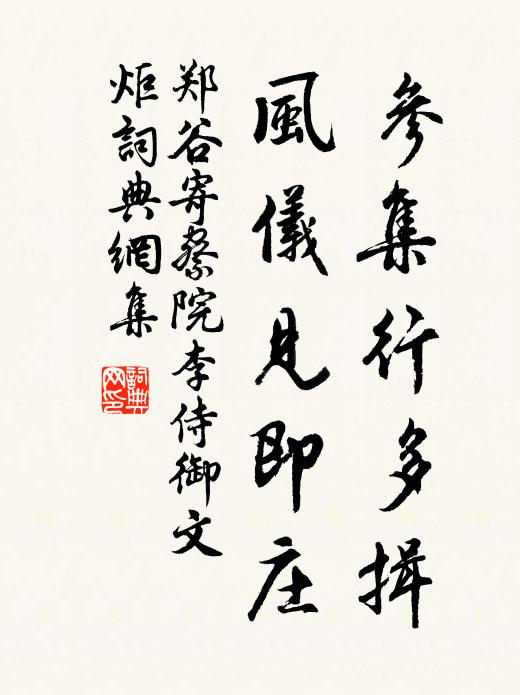 參集行多揖
風儀見即庄
郑谷寄察院李侍御文
炬詞典網集
詞典网印